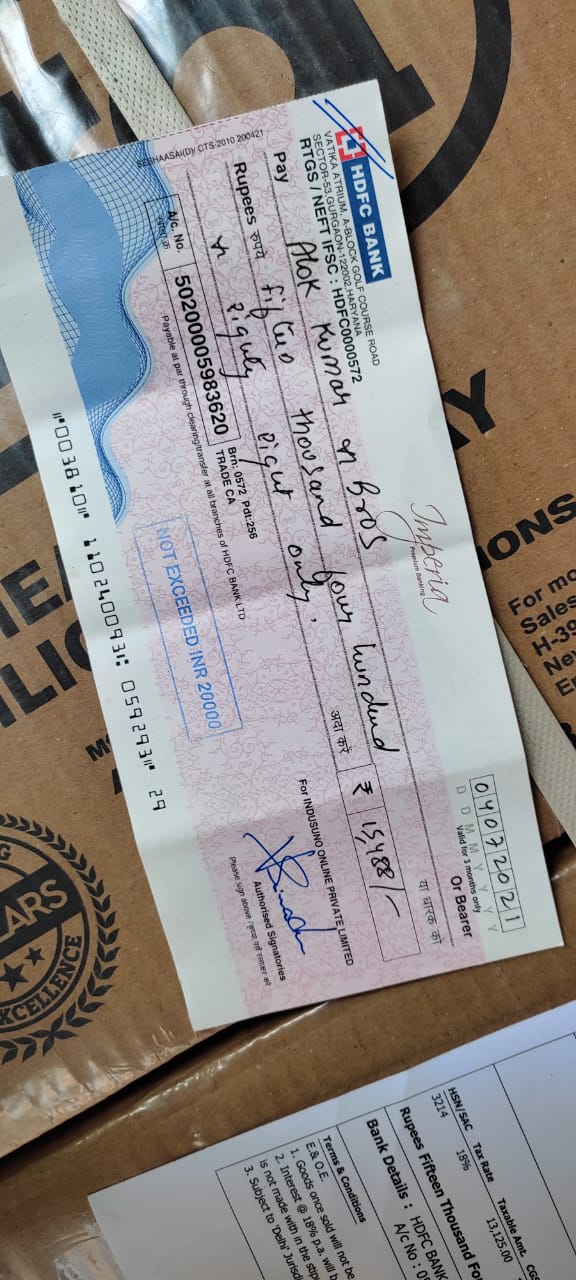 HDFC BANK
VATIKA ATRIUM, A-BLOCK GOLF COURSE ROAD
SECTOR-53, GURGAON-122002, HARYANA
RTGS / NEFT IFSC : HDFC0000572
Imperia
Premium Banking
04072021
D D M M Y Y Y Y
Valid for 3 months only
Pay Alok Kumar n Bros
Or Bearer
या धारक को
Rupees रुपये fifteen thousand four hundred
n eighty eight only,
अदा करें
₹ 15,488/-
A/c. No.
50200005983620
Brn: 0572 Pdt:256
TRADE CA
Payable at par through clearing/transfer at all branches of HDFC BANK LTD
NOT EXCEEDED INR 20000
For INDUSUNO ONLINE PRIVATE LIMITED
Authorised Signatories
Please sign above /
SESHAASAI(D)/ CTS-2010 200421
"003810" 110240093: 059293" 29
ONS
For mo
Sales
H-39
New
En
ARS
EXCELLENCE
HSN/SAC Tax Rate Taxable Amt.
3214 18% 13,125.00
Rupees Fifteen Thousand Fo
Bank Details : HDFC BANK
A/c No : 0
Terms & Conditions
E.& O.E.
1. Goods once sold will not be
2. Interest @ 18% p.a. will b
is not made with in the stip
3. Subject to 'Delhi' Jurisdi